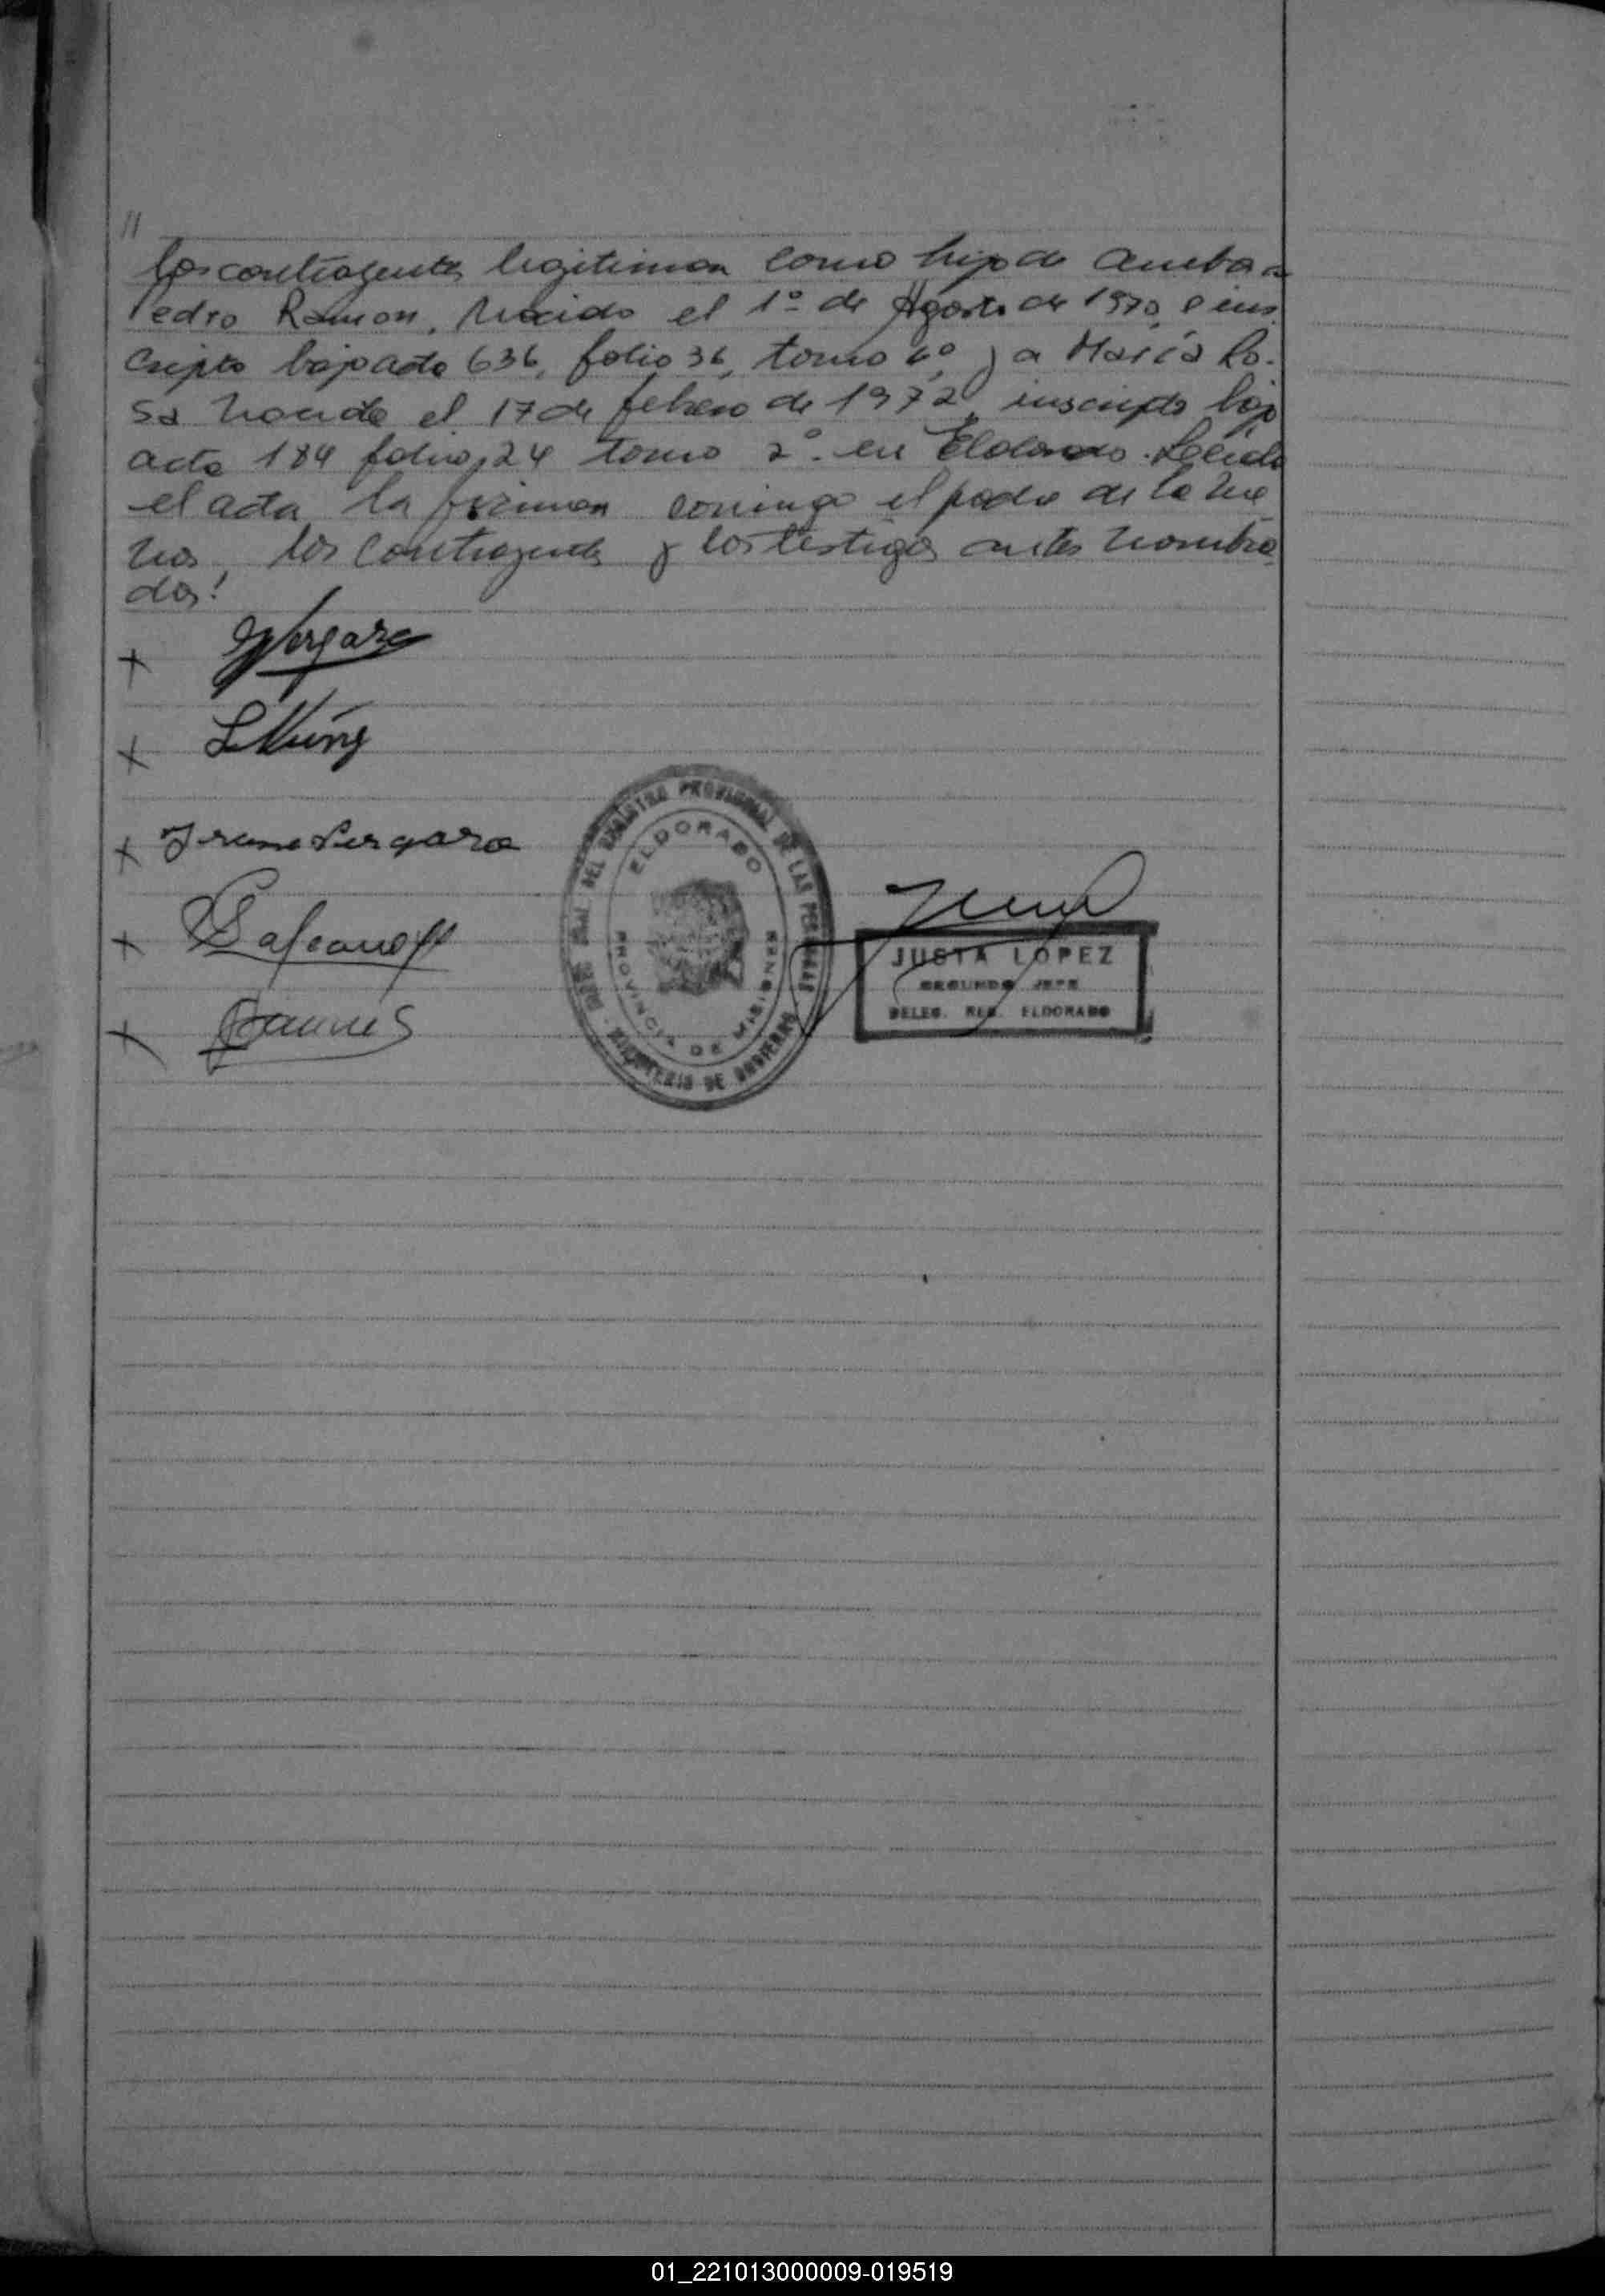 11
los contrayentes legitiman como hijo de ambos a
Pedro Ramon, nacido el 1º de Agosto de 1970, e ins
cripto bajo acta 636, folio 36, tomo 4º, y a María Ro-
sa nacida el 17 de febrero de 1972, inscripta bajo
acta 184 folio 24 tomo 2º. en Eldorado. Leída
el acta la firman conmigo el padre de la
los contrayentes y los testigos antes nombra
dos!
x Vergara
x
x Irene Vergara
x
x
DEL REGISTRO PROVINCIAL DE LAS PERSONAS
ELDORADO
PROVINCIA DE MISIONES
MINISTERIO DE GOBIERNO
JUSTA LOPEZ
SEGUNDO JEFE
DELEG. REG. ELDORADO
01_221013000009-019519